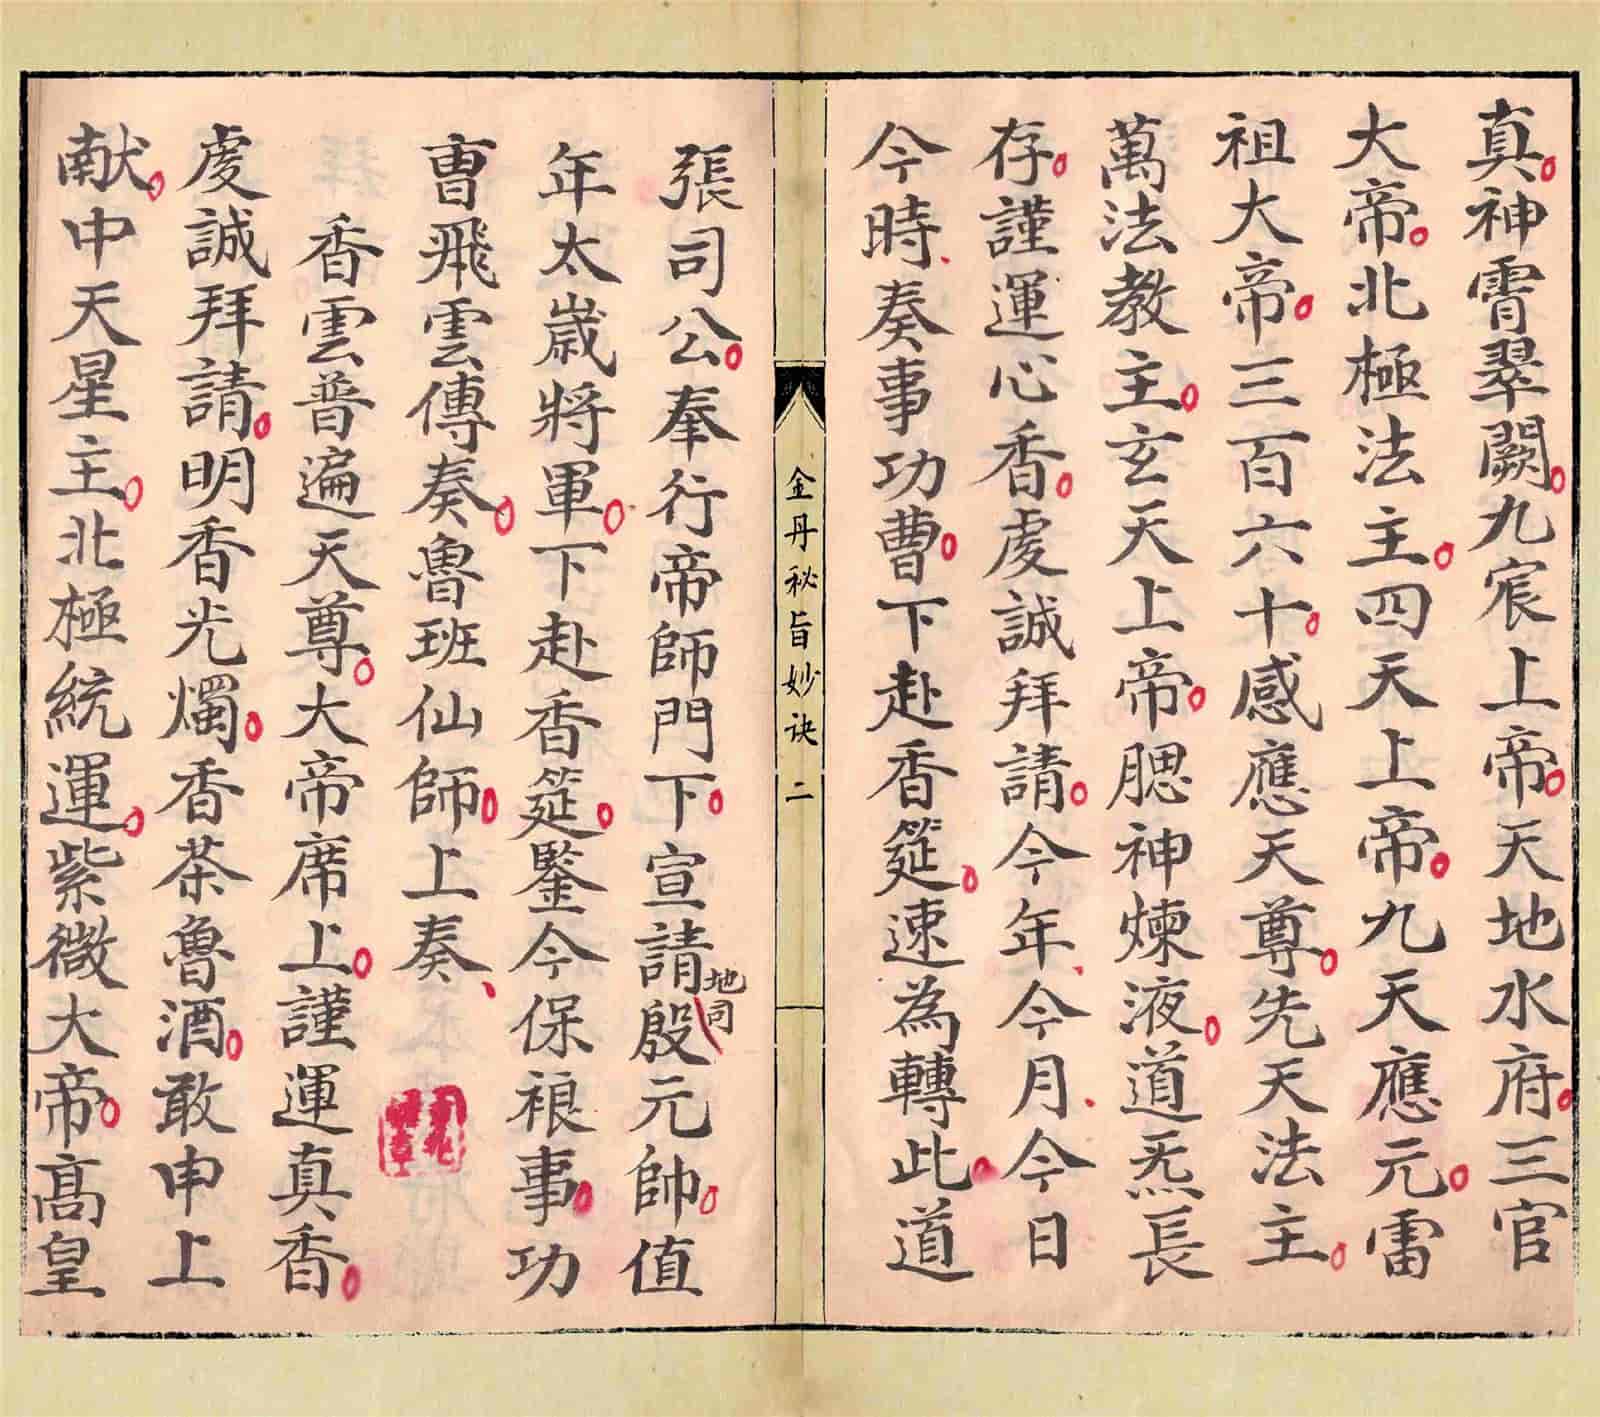 真神霄翠闕九宸上帝天地水府三官
大帝北極法主四天上帝九天應元雷
祖大帝三百六十感應天尊先天法主
萬法教主玄天上帝腮神煉液道炁長
存謹運心香虔誠拜請今年今月今日
今時奏事功曹下赴香筵速為轉此道
金丹秘旨妙訣 二
張司公奉行帝師門下宣請殷元帥值
地司
年太歲將軍下赴香筵鑒今保裉事功
曺飛雲傳奏魯班仙師上奏
香雲普遍天尊大帝席上謹運真香
虔誠拜請明香光燭香茶魯酒敢申上
献中天星主北極統運紫微大帝髙皇